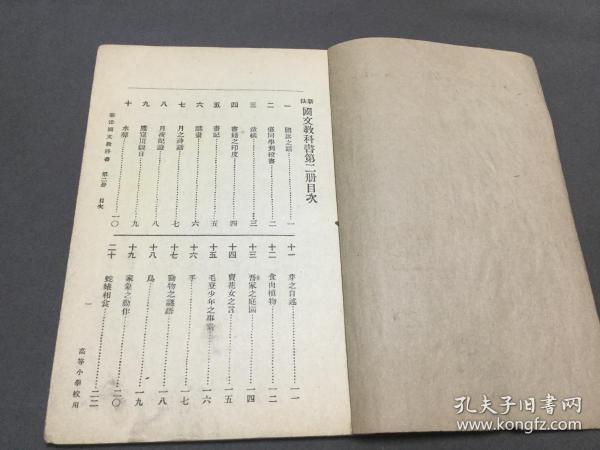 新法國文教科書第二册目次
一 國旗之話……一
二 償同學到校書……二
三 音樂……三
四 書籍之印度……四
五 書記……五
六 讀畫……六
七 月之神話……七
八 月夜紀遊……八
九 鷹窠頂觀日……九
十 水鄰……一〇
十一 芽之自述……一一
十二 食肉植物……一二
十三 吾家之庭園……一四
十四 賣花女之言……一五
十五 毛登少年之事業……一六
十六 手……一七
十七 動物之謎語……一八
十八 鳥……一九
十九 家畜之動作……二〇
二十 蛇蛙相食……二二
新法國文教科書 第二册 目次
一
高等小學校用
孔夫子旧書网
www.kongfz.com